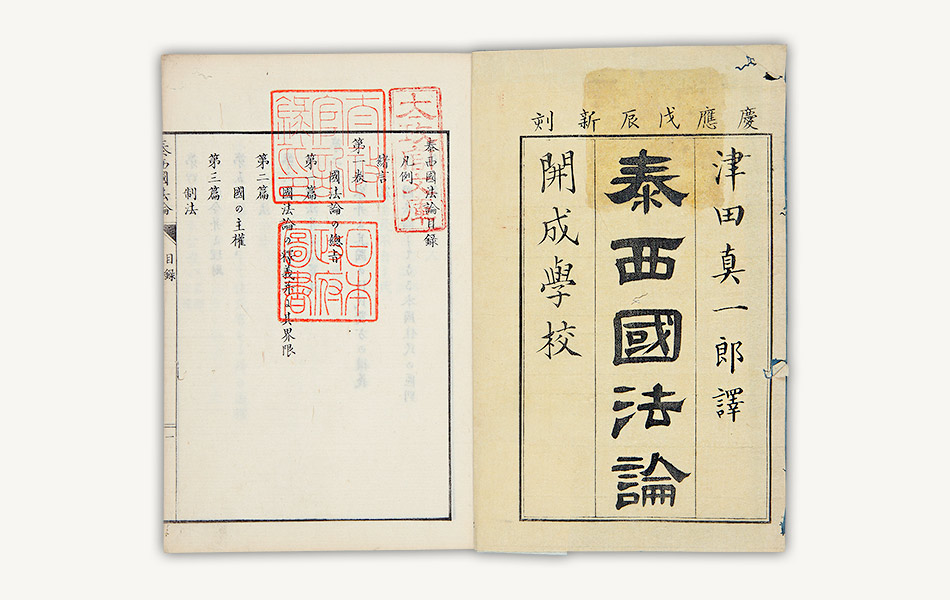 慶應戊辰新刻
津田真一郎譯
泰西國法論
開成學校
泰西國法論目録
凡例
緒言
第一巻
國法論の總
第一篇
國法論の釋義并に其界限
第二篇
國の主權
第三篇
制法
泰西國法論 目録 一
太政官文庫
日本政府圖書